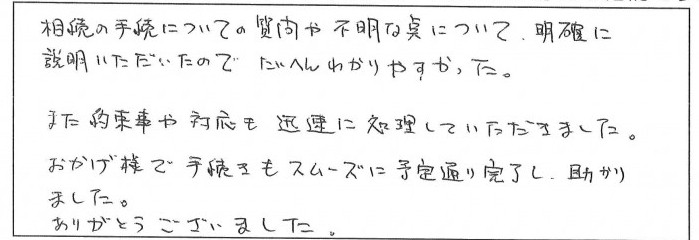 相続の手続についての質問や不明な点について、明確に
説明いただいたので たいへんわかりやすかった。
また約束事や対応も迅速に処理していただきました。
おかげ様で手続きもスムーズに予定通り完了し、助かり
ました。
ありがとうございました。